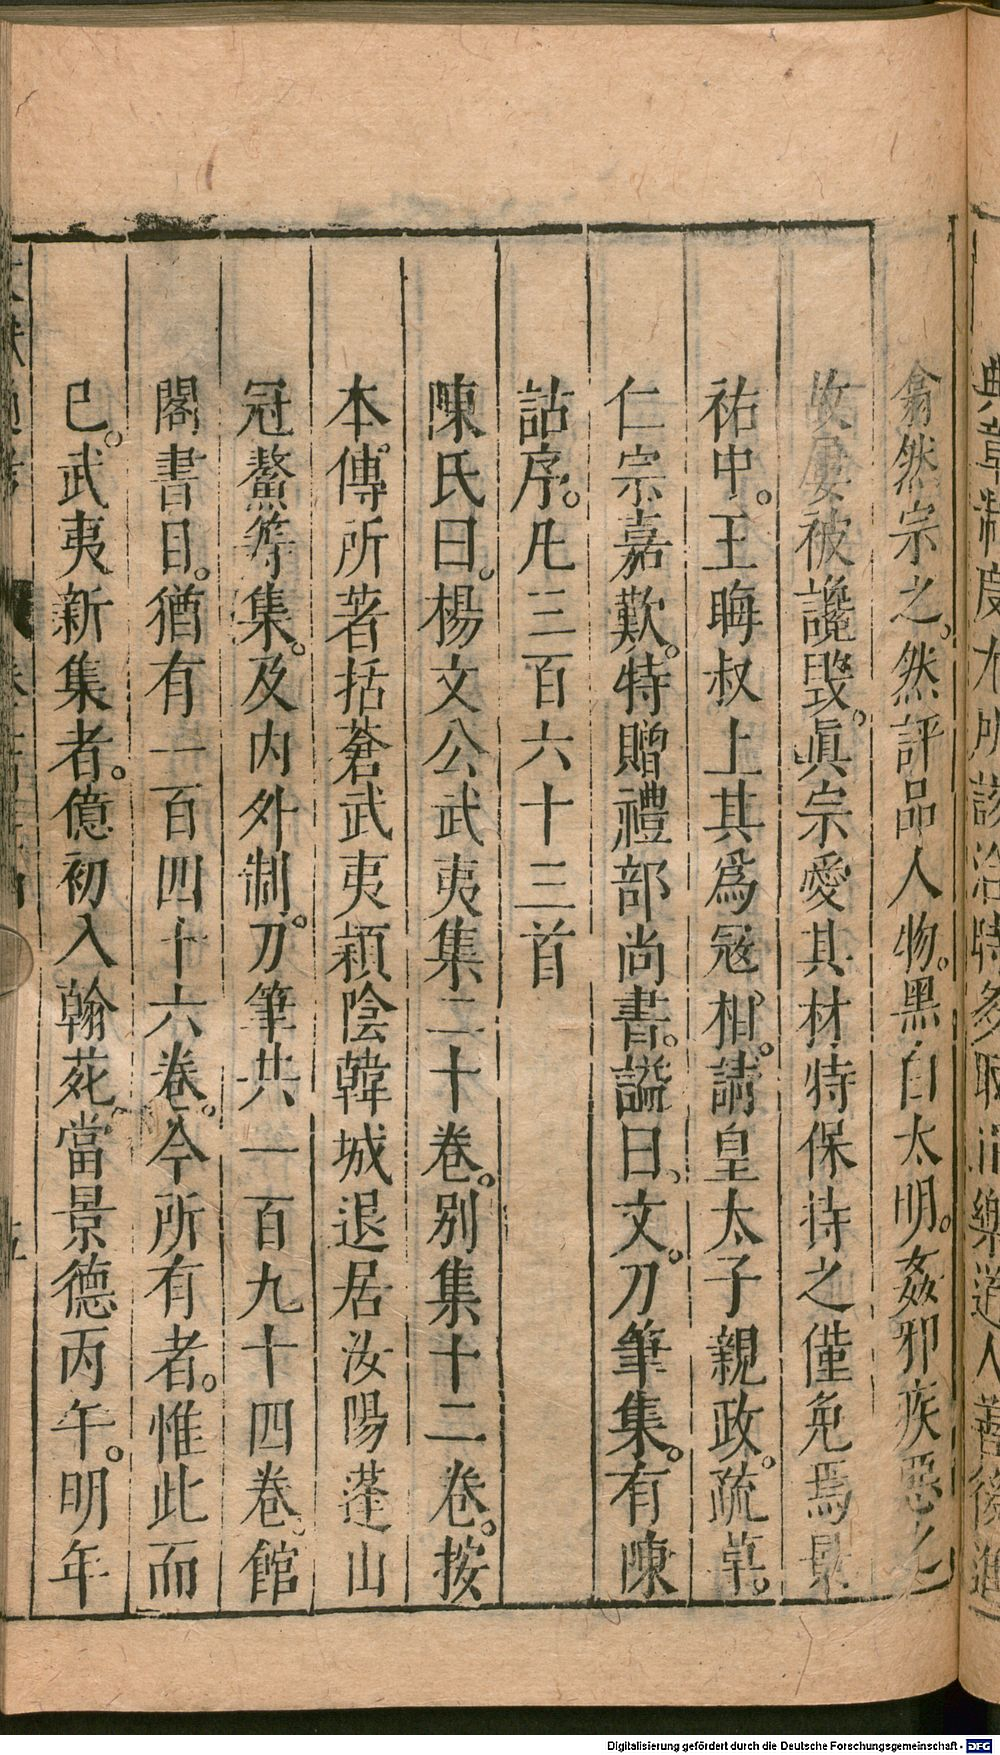 典章制度尤所該洽時多取正樂道人善後進
翕然宗之。然評品人物。黑白太明。姦邪疾惡之
故屢被讒毀。眞宗愛其材。特保持之僅免焉景
祐中。王晦叔上其爲寇相。請皇太子親政。疏草。
仁宗嘉歎。特贈禮部尚書。謚曰、文。刀筆集。有陳
詁序。凡三百六十三首
陳氏曰。楊文公武夷集二十卷。别集十二卷。按
本傳所著括蒼武夷潁陰韓城退居汝陽蓬山
冠鰲等集。及内外制。刀筆共一百九十四卷。館
閣書目。猶有一百四十六卷。今所有者。惟此而
已。武夷新集者。億初入翰苑當景德丙午。明年
文獻通考
Digitalisierung gefördert durch die Deutsche Forschungsgemeinschaft - DFG